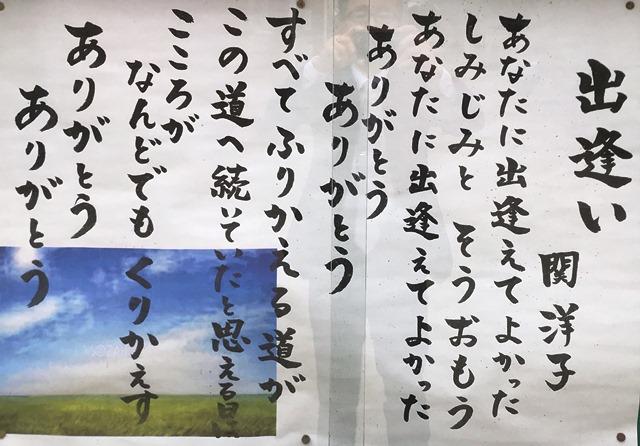 出逢い
関洋子
あなたに出逢えてよかった
しみじみと そうおもう
あなたに出逢えてよかった
ありがとう
ありがとう
すべてふりかえる道が
この道へ続いていたと思える
こころが
なんどでも くりかえす
ありがとう
ありがとう